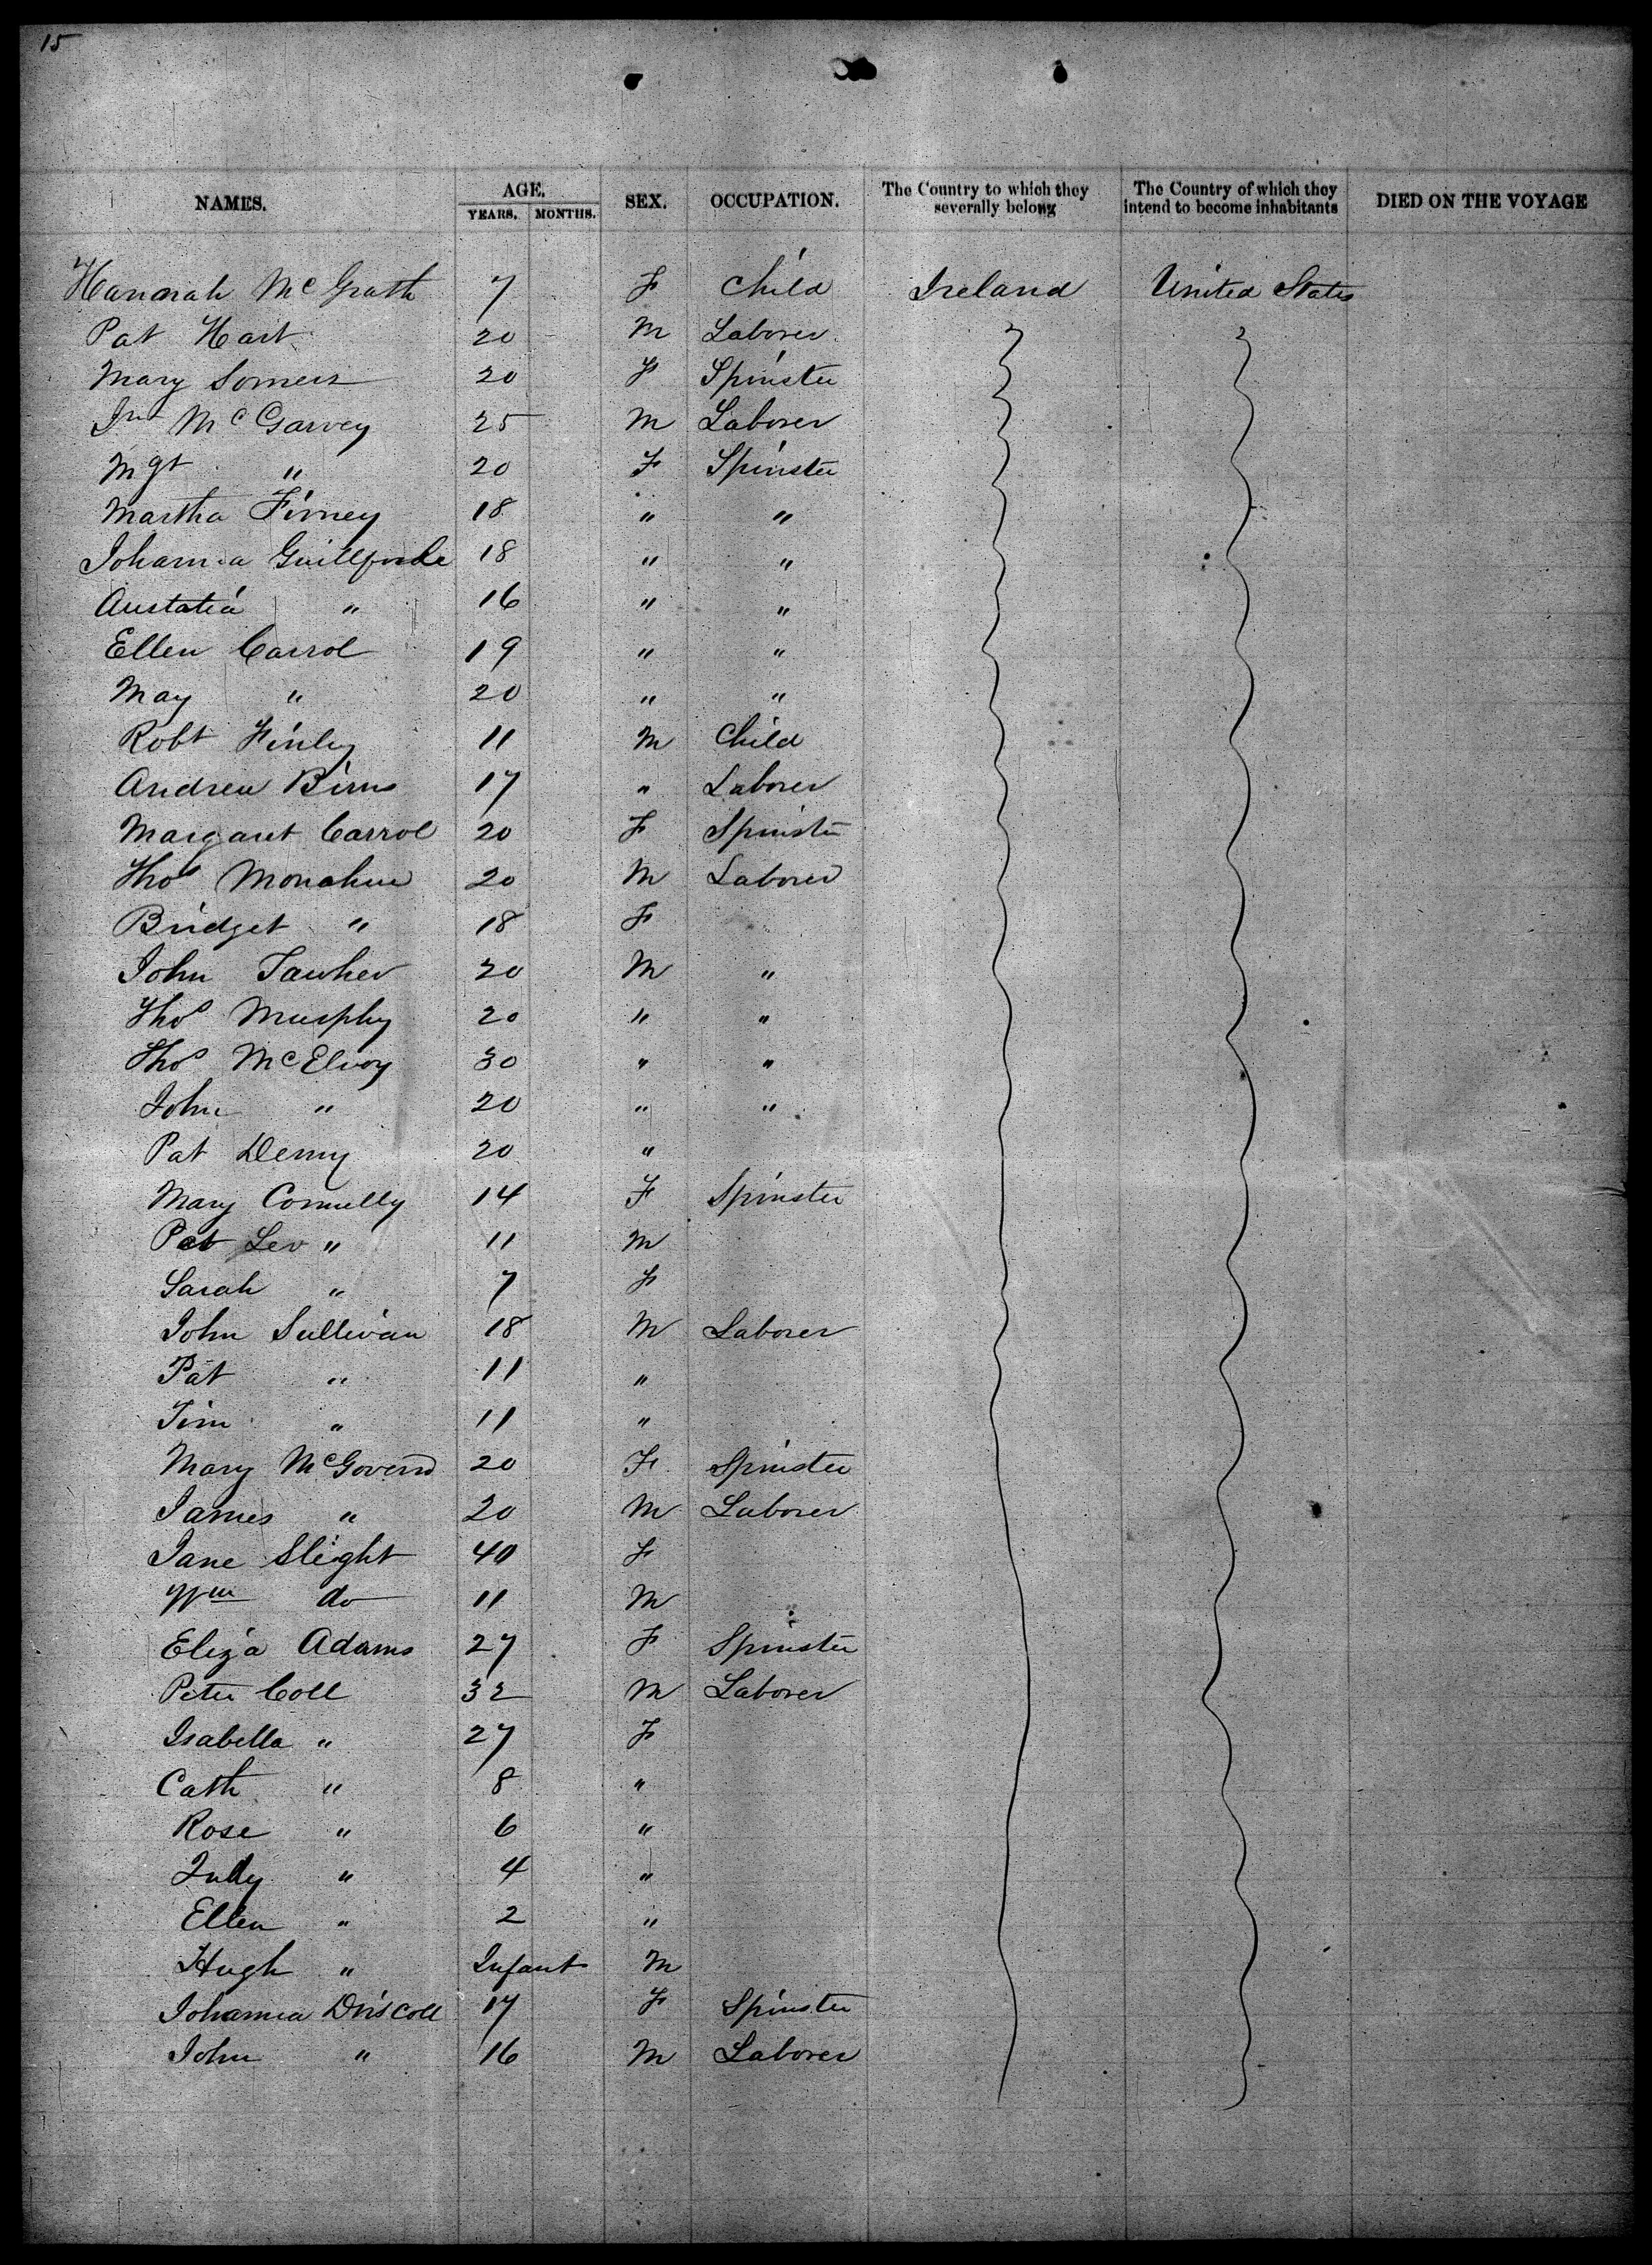 15
NAMES. AGE. SEX. OCCUPATION. The Country to which they severally belong The Country of which they intend to become inhabitants DIED ON THE VOYAGE
YEARS. MONTHS.
Hannah McGrath 7 F Child Ireland United States
Pat Hart 20 M Laborer
Mary Somers 20 F Spinster
Jno McGarvey 25 M Laborer
Mgt " 20 F Spinster
Martha Finney 18 " "
Johanna 18 " "
" 16 " "
Ellen Carrol 19 " "
May " 20 " "
Robt Finley 11 M Child
Andrew Birns 17 " Laborer
Margaret Carrol 20 F Spinster
Thos Monahue 20 M Laborer
Bridget " 18 F
John 20 M "
Thos Murphy 20 " "
Thos McElvoy 30 " "
John " 20 " "
Pat Denny 20 "
Mary Connelly 14 F Spinster
Pat " 11 M
Sarah " 7 F
John Sullivan 18 M Laborer
Pat " 11 "
Tim " 11 "
Mary McGovern 20 F Spinster
James " 20 M Laborer
Jane Sleight 40 F
Wm do 11 M
Eliza Adams 27 F Spinster
Peter Coll 32 M Laborer
Isabella " 27 F
Cath " 8 "
Rose " 6 "
Judy " 4 "
Ellen " 2 "
Hugh " Infant M
Johanna Driscoll 17 F Spinster
John " 16 M Laborer